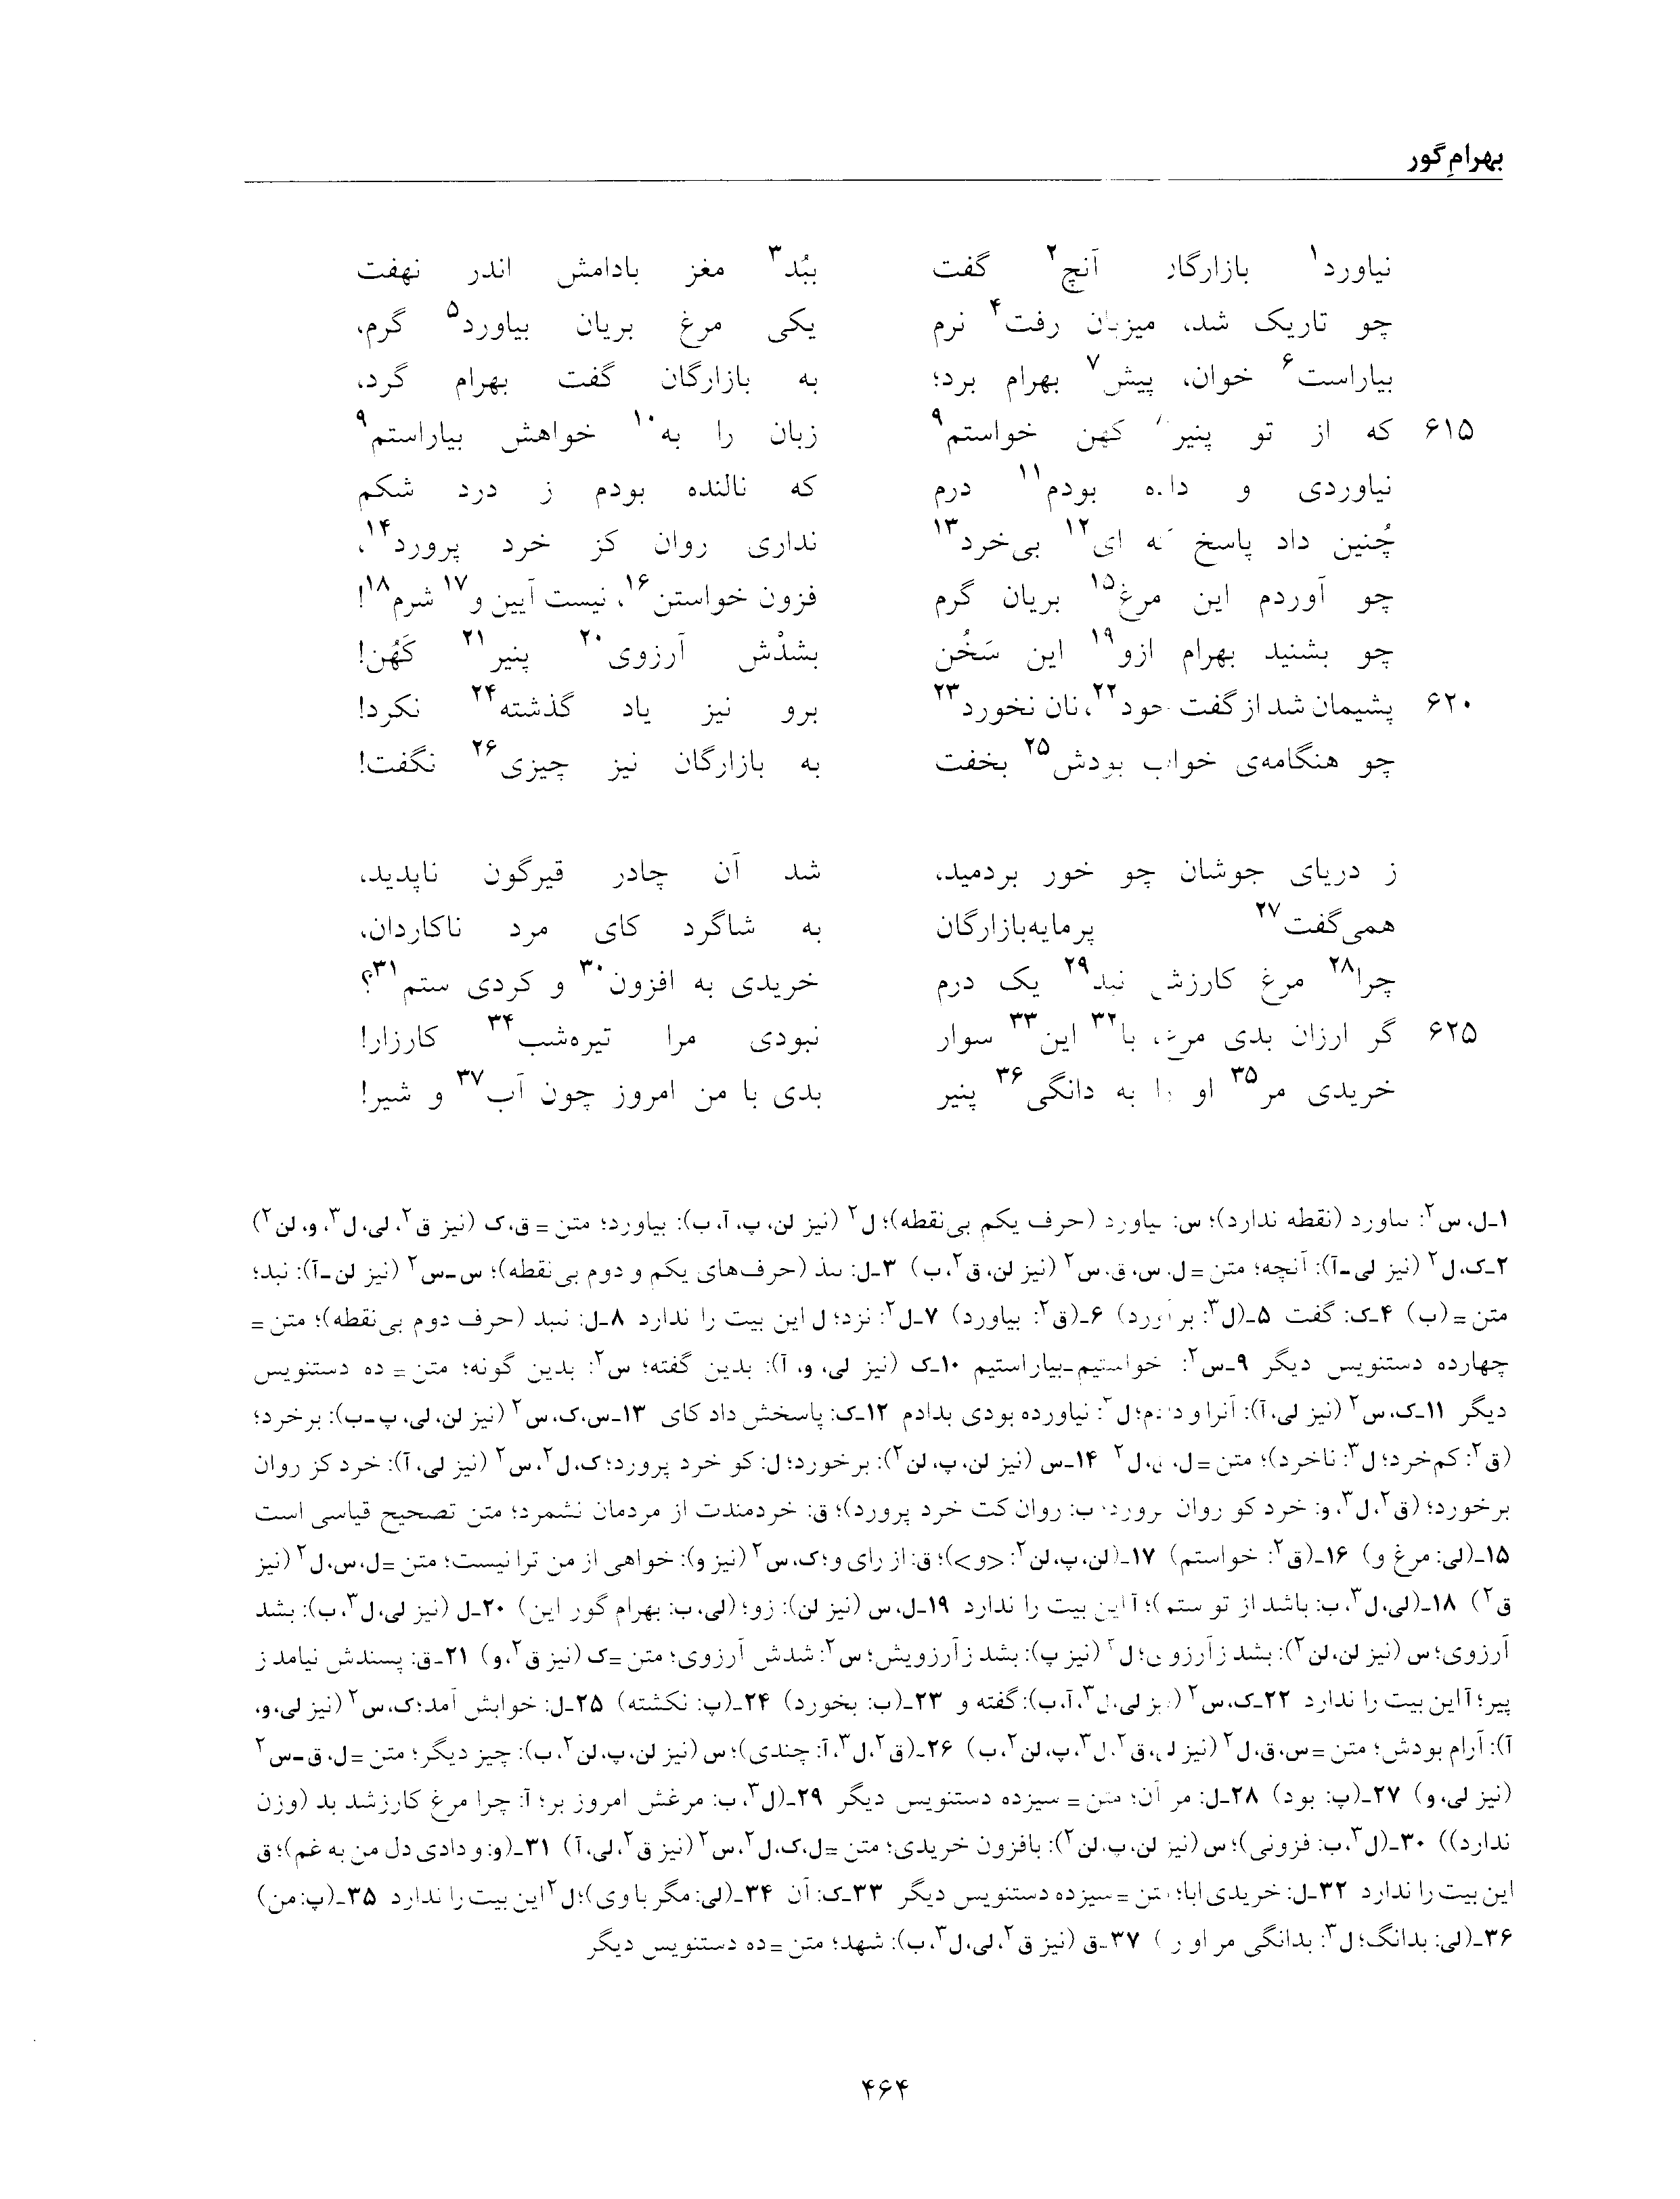 بهرامِ گور
نیاورد۱ بازارگان آنچ۲ گفت ببُد۳ مغز بادامش اندر نهفت
چو تاریک شد، میزبان رفت۴ نرم یکی مرغ بریان بیاورد۵ گرم،
بیاراست۶ خوان، پیش۷ بهرام برد؛ به بازارگان گفت بهرام گرد،
۶۱۵ که از تو پنیر۸ کهن خواستم۹ زبان را به۱۰ خواهش بیاراستم۹
نیاوردی و داده بودم۱۱ درم که نالنده بودم ز درد شکم
چُنین داد پاسخ که ای۱۲ بی‌خرد۱۳ نداری روان کز خرد پرورد۱۴،
چو آوردم این مرغ۱۵ بریان گرم فزون خواستن۱۶، نیست آیین و۱۷ شرم۱۸!
چو بشنید بهرام ازو۱۹ این سَخُن بشدْش آرزوی۲۰ پنیر۲۱ کَهُن!
۶۲۰ پشیمان شد از گفت خود۲۲، نان نخورد۲۳ برو نیز یاد گذشته۲۴ نکرد!
چو هنگامه‌ی خواب بودش۲۵ بخفت به بازارگان نیز چیزی۲۶ نگفت!
ز دریای جوشان چو خور بردمید، شد آن چادر قیرگون ناپدید،
همی‌گفت۲۷ پرمایه‌بازارگان به شاگرد کای مرد ناکاردان،
چرا۲۸ مرغ کارزش نبد۲۹ یک درم خریدی به افزون۳۰ و کردی ستم۳۱؟
۶۲۵ گر ارزان بدی مرغ، با۳۲ این۳۳ سوار نبودی مرا تیره‌شب۳۴ کارزار!
خریدی مر۳۵ او را به دانگی۳۶ پنیر بدی با من امروز چون آب۳۷ و شیر!
۱ـ‌ل، س۲: ساورد (نقطه ندارد)؛ س: بیاورد (حرف یکم بی‌نقطه)؛ ل۲ (نیز لن، پ، آ، ب): بیاورد؛ متن = ق، ک (نیز ق۲، لی، ل۳، و، لن۲)
۲ـ‌ک، ل۲ (نیز لی‌ـ‌آ): آنچه؛ متن = ل، س، ق، س۲ (نیز لن، ق۲، ب) ۳ـ‌ل: ںںد (حرف‌های یکم و دوم بی‌نقطه)؛ س‌ـ‌س۲ (نیز لن‌ـ‌آ): نبد؛
متن = (ب) ۴ـ‌ک: گفت ۵ـ(ل۳: برآورد) ۶ـ(ق۲: بیاورد) ۷ـ‌ل۲: نزد؛ ل این بیت را ندارد ۸ـ‌ل: نبید (حرف دوم بی‌نقطه)؛ متن =
چهارده دستنویس دیگر ۹ـ‌س۲: خواستیم‌ـ‌بیاراستیم ۱۰ـ‌ک (نیز لی، و، آ): بدین گفته؛ س۲: بدین گونه؛ متن = ده دستنویس
دیگر ۱۱ـ‌ک، س۲ (نیز لی، آ): آنرا و دادم؛ ل۲: نیاورده بودی بدادم ۱۲ـ‌ک: پاسخش داد کای ۱۳ـ‌س، ک، س۲ (نیز لن، لی، پ‌ـ‌ب): برخرد؛
(ق۲: کم‌خرد؛ ل۳: ناخرد)؛ متن = ل، ق، ل۲ ۱۴ـ‌س (نیز لن، پ، لن۲): برخورد؛ ل: کو خرد پرورد؛ ک، ل۲، س۲ (نیز لی، آ): خرد کز روان
برخورد؛ (ق۲، ل۳، و: خرد کو روان پرورد؛ ب: روان کت خرد پرورد)؛ ق: خردمندت از مردمان نشمرد؛ متن تصحیح قیاسی است
۱۵ـ(لی: مرغ و) ۱۶ـ(ق۲: خواستم) ۱۷ـ(لن، پ، لن۲: <و>)؛ ق: از رای و؛ ک، س۲ (نیز و): خواهی از من ترا نیست؛ متن = ل، س، ل۲ (نیز
ق۲) ۱۸ـ(لی، ل۳، ب: باشد از تو ستم)؛ آ این بیت را ندارد ۱۹ـ‌ل، س (نیز لن): زو؛ (لی، ب: بهرام گور این) ۲۰ـ‌ل (نیز لی، ل۳، ب): بشد
آرزوی؛ س (نیز لن، لن۲): بشد زآرزوی؛ ل۲ (نیز پ): بشد زآرزویش؛ س۲: شدش آرزوی؛ متن = ک (نیز ق۲، و) ۲۱ـ‌ق: پسندش نیامد ز
پیر؛ آ این بیت را ندارد ۲۲ـ‌ک، س۲ (نیز لی، ل۳، آ، ب): گفته و ۲۳ـ(ب: بخورد) ۲۴ـ(پ: نکشته) ۲۵ـ‌ل: خوابش آمد؛ ک، س۲ (نیز لی، و،
آ): آرام بودش؛ متن = س، ق، ل۲ (نیز لن، ق۲، ل۳، پ، لن۲، ب) ۲۶ـ(ق۲، ل۳، آ: چندی)؛ س (نیز لن، پ، لن۲، ب): چیز دیگر؛ متن = ل، ق‌ـ‌س۲
(نیز لی، و) ۲۷ـ(پ: بود) ۲۸ـ‌ل: مر آن؛ متن = سیزده دستنویس دیگر ۲۹ـ(ل۳، ب: مرغش امروز بر؛ آ: چرا مرغ کارزشد بد (وزن
ندارد)) ۳۰ـ(ل۳، ب: فزونی)؛ س (نیز لن، پ، لن۲): بافزون خریدی؛ متن = ل، ک، ل۲، س۲ (نیز ق۲، لی، آ) ۳۱ـ(و: و دادی دل من به غم)؛ ق
این بیت را ندارد ۳۲ـ‌ل: خریدی ابا؛ متن = سیزده دستنویس دیگر ۳۳ـ‌ک: آن ۳۴ـ(لی: مگر با وی)؛ ل۲ این بیت را ندارد ۳۵ـ(پ: من)
۳۶ـ(لی: بدانگ؛ ل۳: بدانگی مر او را) ۳۷ـ‌ق (نیز ق۲، لی، ل۳، ب): شهد؛ متن = ده دستنویس دیگر
۴۶۴